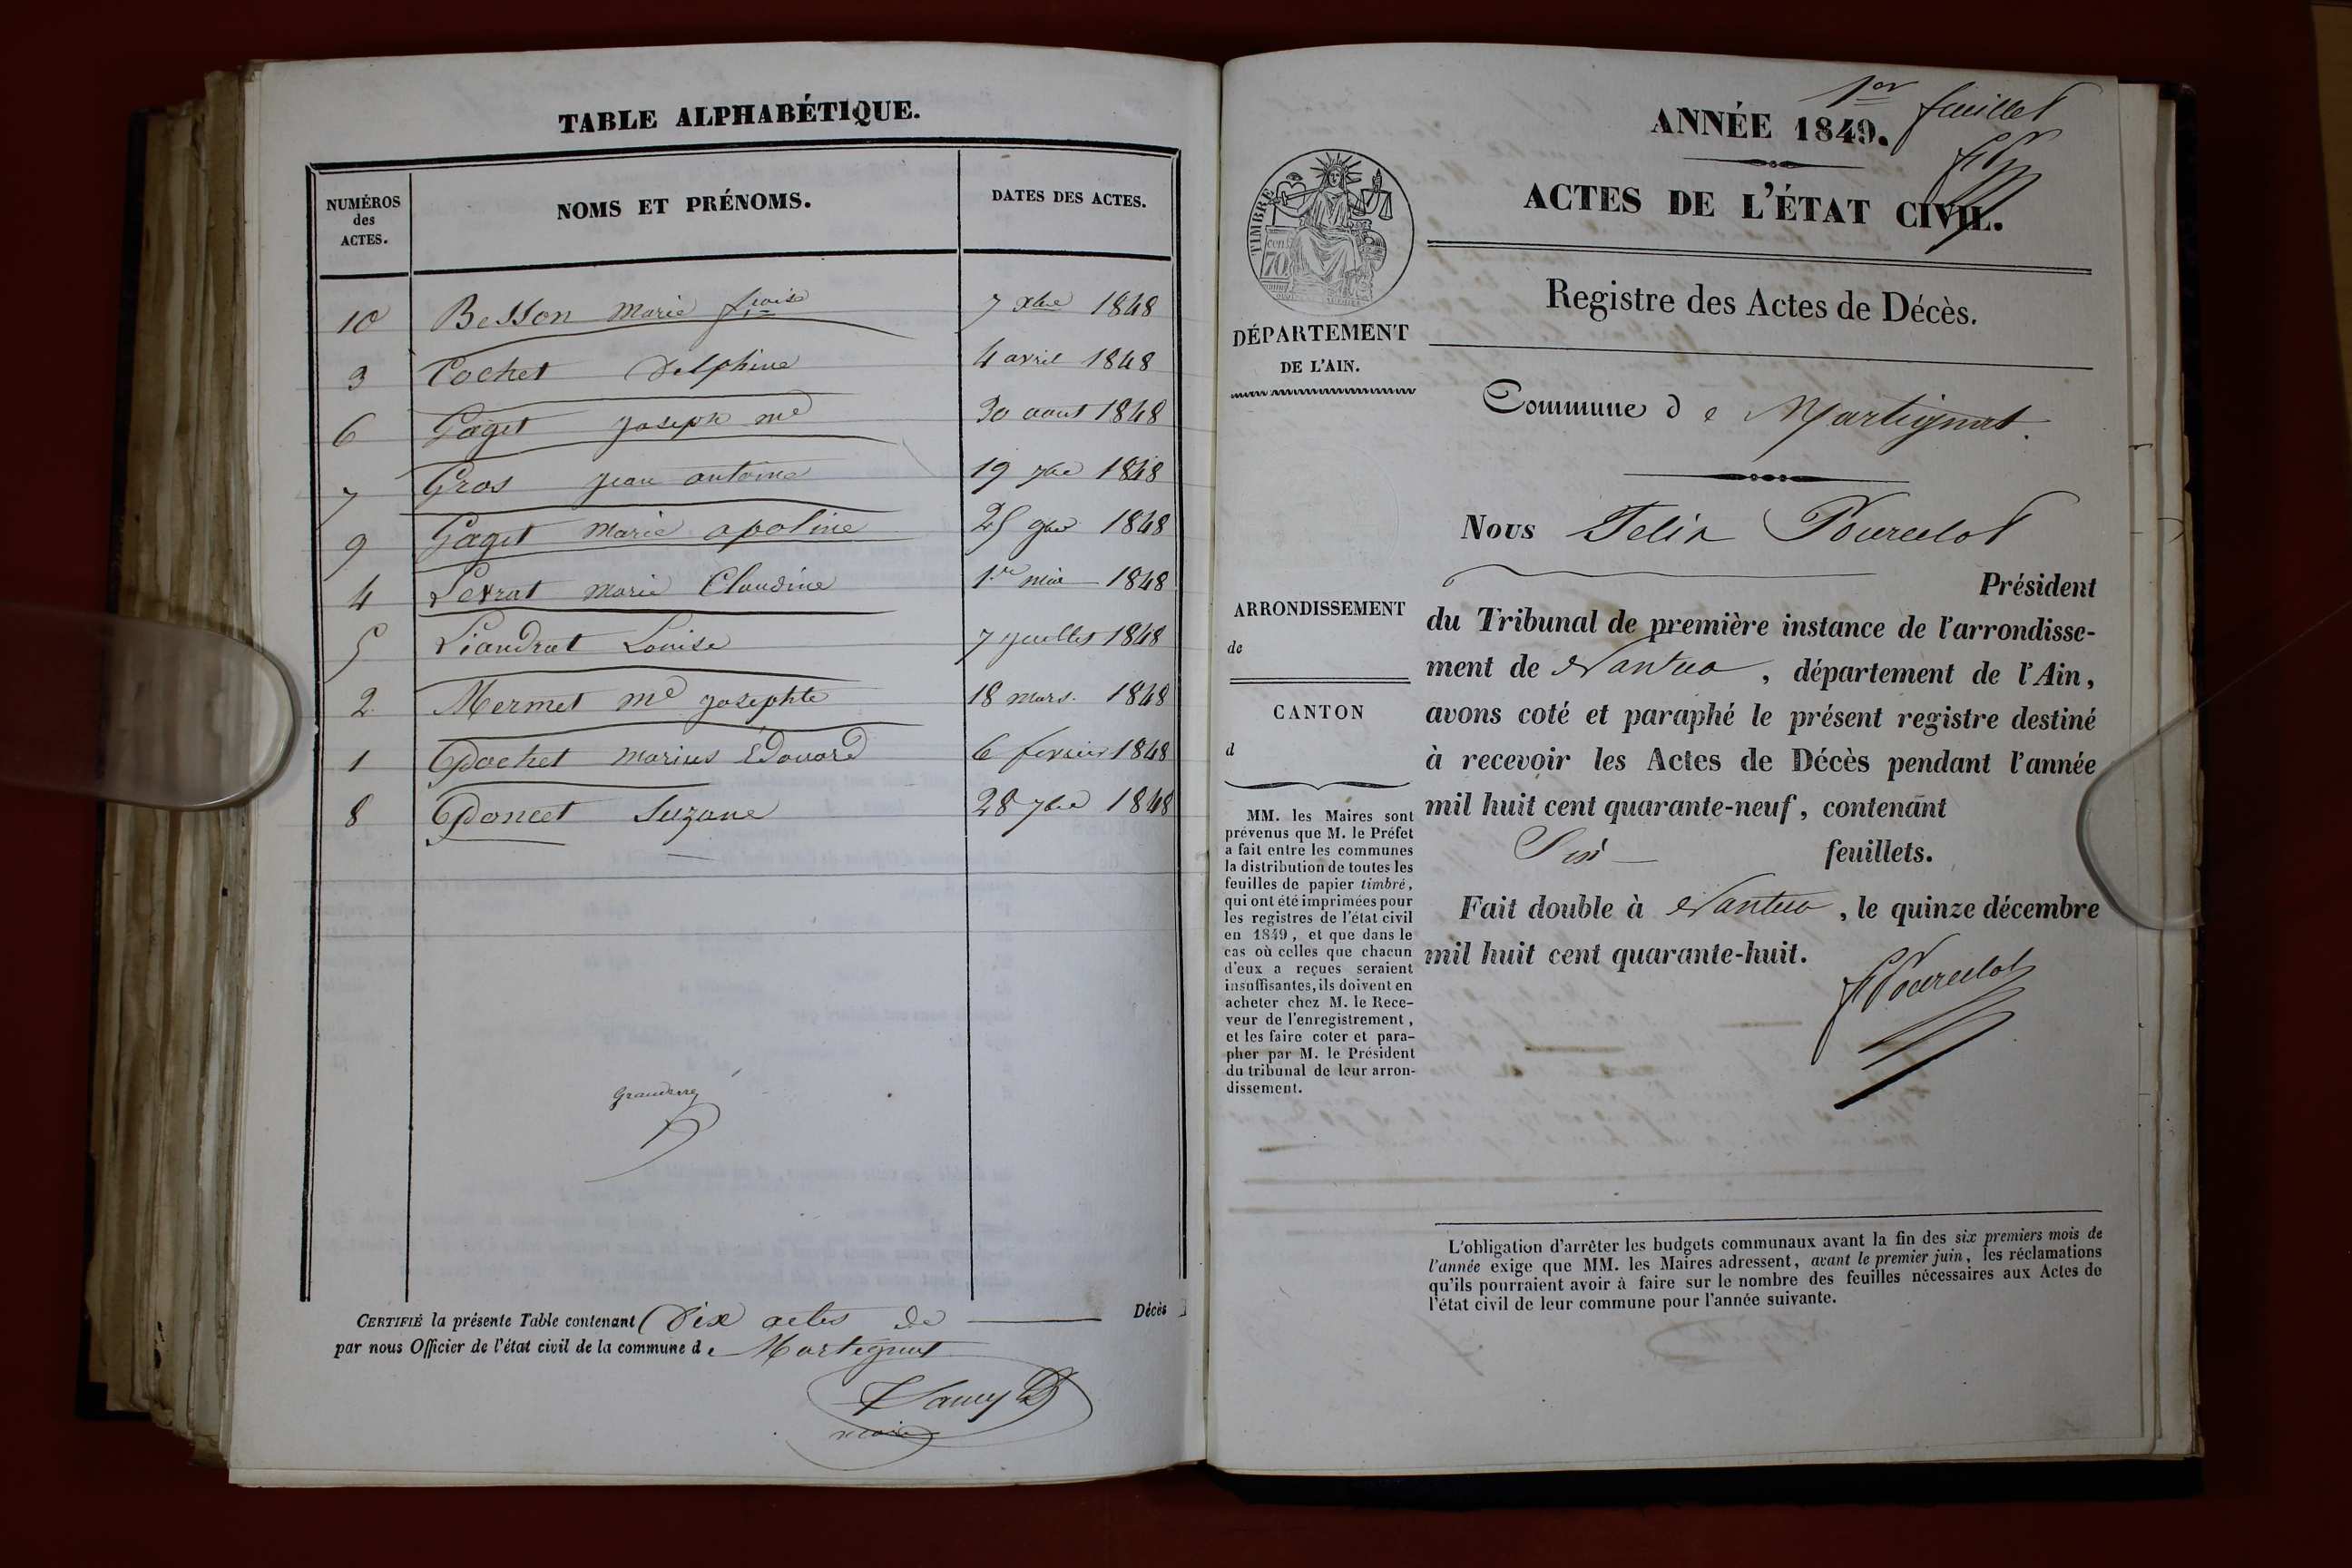 TABLE ALPHABÉTIQUE.
NUMÉROS des ACTES.
NOMS ET PRÉNOMS.
DATES DES ACTES.
10 Besson Marie fçoise 7 xbre 1848
3 Cochet Delphine 4 avril 1848
6 Gaget Joseph me 30 aout 1848
7 Gros Jean antoine 19 7bre 1848
9 Gaget Marie apoline 25 9bre 1848
4 Levrat Marie Claudine 1er mai 1848
5 Liandrat Louise 7 juillet 1848
2 Mermet me josephte 18 mars. 1848
1 Pochet Marius Edouard 6 fevrier 1848
8 Poncet Suzane 28 7bre 1848
CERTIFIÉ la présente Table contenant Dix actes de Décès
par nous Officier de l'état civil de la commune de Martignat
maire
1er feuillet
ANNÉE 1849.
ACTES DE L'ÉTAT CIVIL.
TIMBRE
70
Registre des Actes de Décès.
DÉPARTEMENT
DE L'AIN.
Commune de Martignat.
Nous Felix Pourcelot
Président
du Tribunal de première instance de l'arrondisse-
ment de Nantua, département de l'Ain,
avons coté et paraphé le présent registre destiné
à recevoir les Actes de Décès pendant l'année
mil huit cent quarante-neuf, contenant
Six feuillets.
Fait double à Nantua, le quinze décembre
mil huit cent quarante-huit.
FPourcelot
ARRONDISSEMENT
de
CANTON
d
MM. les Maires sont
prévenus que M. le Préfet
a fait entre les communes
la distribution de toutes les
feuilles de papier timbré,
qui ont été imprimées pour
les registres de l'état civil
en 1849, et que dans le
cas où celles que chacun
d'eux a reçues seraient
insuffisantes, ils doivent en
acheter chez M. le Rece-
veur de l'enregistrement,
et les faire coter et para-
pher par M. le Président
du tribunal de leur arron-
dissement.
L'obligation d'arrêter les budgets communaux avant la fin des six premiers mois de
l'année exige que MM. les Maires adressent, avant le premier juin, les réclamations
qu'ils pourraient avoir à faire sur le nombre des feuilles nécessaires aux Actes de
l'état civil de leur commune pour l'année suivante.